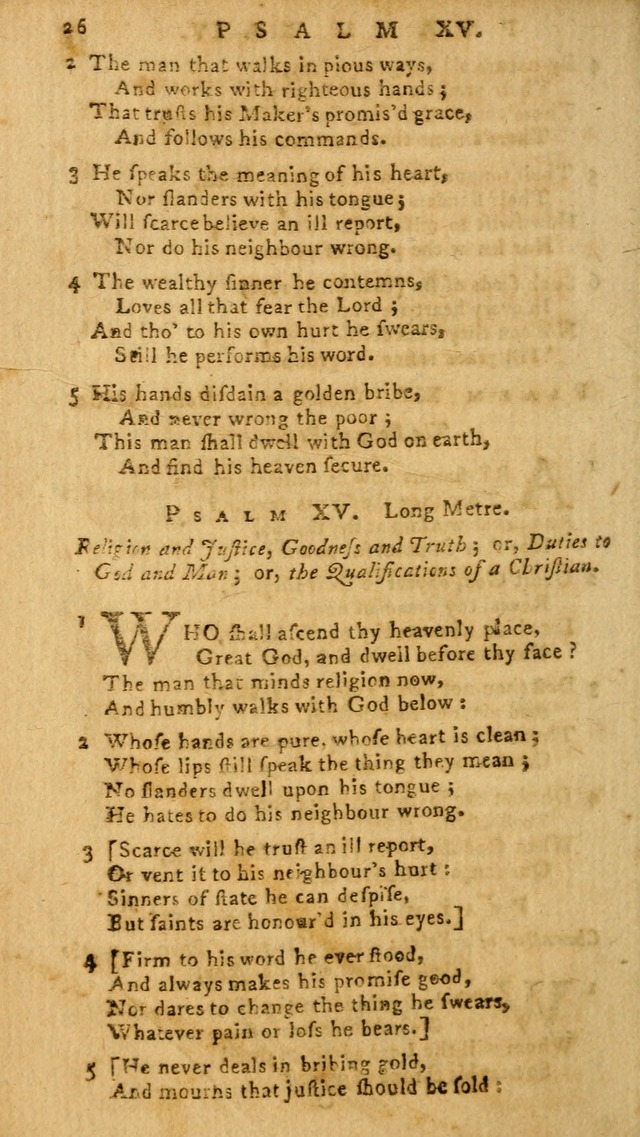 26 PSALM XV.
2 The man that walks in pious ways,
And works with righteous hands;
That truſts his Maker's promis'd grace,
And follows his commands.
3 He ſpeaks the meaning of his heart,
Nor ſlanders with his tongue;
Will ſcarce believe an ill report,
Nor do his neighbour wrong.
4 The wealthy ſinner he contemns,
Loves all that fear the Lord;
And tho' to his own hurt he ſwears,
Still he performs his word.
5 His hands diſdain a golden bribe,
And never wrong the poor;
This man ſhall dwell with God on earth,
And find his heaven ſecure.
PSALM XV. Long Metre.
Religion and Juſtice, Goodneſs and Truth; or, Duties to
God and Man; or, the Qualifications of a Chriſtian.
1 WHO ſhall aſcend thy heavenly place,
Great God, and dwell before thy face?
The man that minds religion now,
And humbly walks with God below:
2 Whoſe hands are pure, whoſe heart is clean;
Whoſe lips ſtill ſpeak the thing they mean;
No ſlanders dwell upon his tongue;
He hates to do his neighbour wrong.
3 [Scarce will he truſt an ill report,
Or vent it to his neighbour's hurt:
Sinners of ſtate he can deſpiſe,
But ſaints are honour'd in his eyes.]
4 [Firm to his word he ever ſtood,
And always makes his promiſe good,
Nor dares to change the thing he ſwears,
Whatever pain or loſs he bears.]
5 [He never deals in bribing gold,
And mourns that juſtice ſhould be ſold: